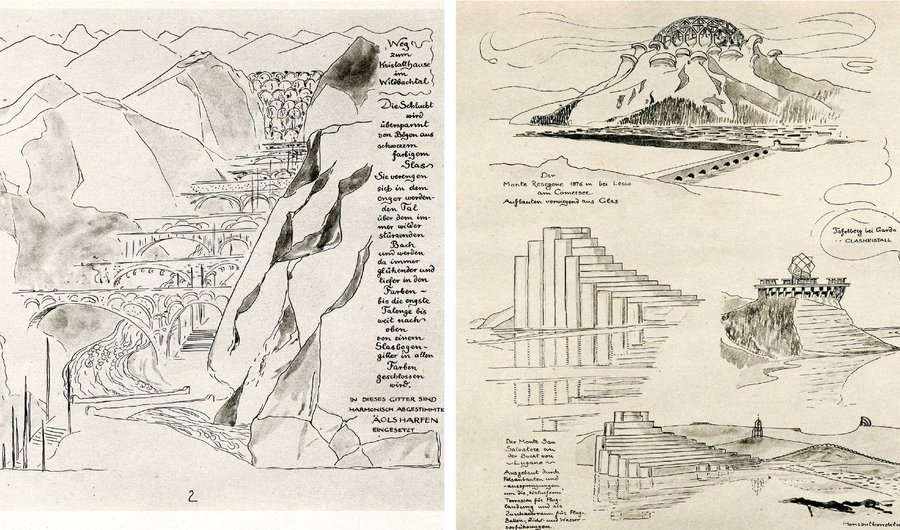 Weg
zum
Kristallhause
im
Wildbachtal
Die Schlucht
wird
überspannt
von Bögen aus
schwerem
farbigem
Glas
Sie verengen
sich in dem
enger werden-
den Tal
über dem im-
mer wilder
stürzenden
Bach
und werden
da immer
glühender und
tiefer in den
Farben ~
bis die engste
Talenge bis
weit nach
oben
von einem
Glasbogen-
gitter in allen
Farben
geschlossen
wird.
IN DIESES GITTER SIND
HARMONISCH ABGESTIMMTE
ÄOLSHARFEN
EINGESETZT
2
Der
Monte Resegone 1876 m bei Lecco
am Comersee
Aufbauten vorwiegend aus Glas
Tafelberg bei Garda
GLASKRISTALL
Der Monte San
Salvatore an
der Bucht von
Lugano
Ausgebaut durch
Felsanbauten und
-aussprengungen
um die "Naturform"
Terrassen für Flug-
landung und als
Zuschauerraum für Flug,
Ballon, Licht- und Wasser-
vorführungen.